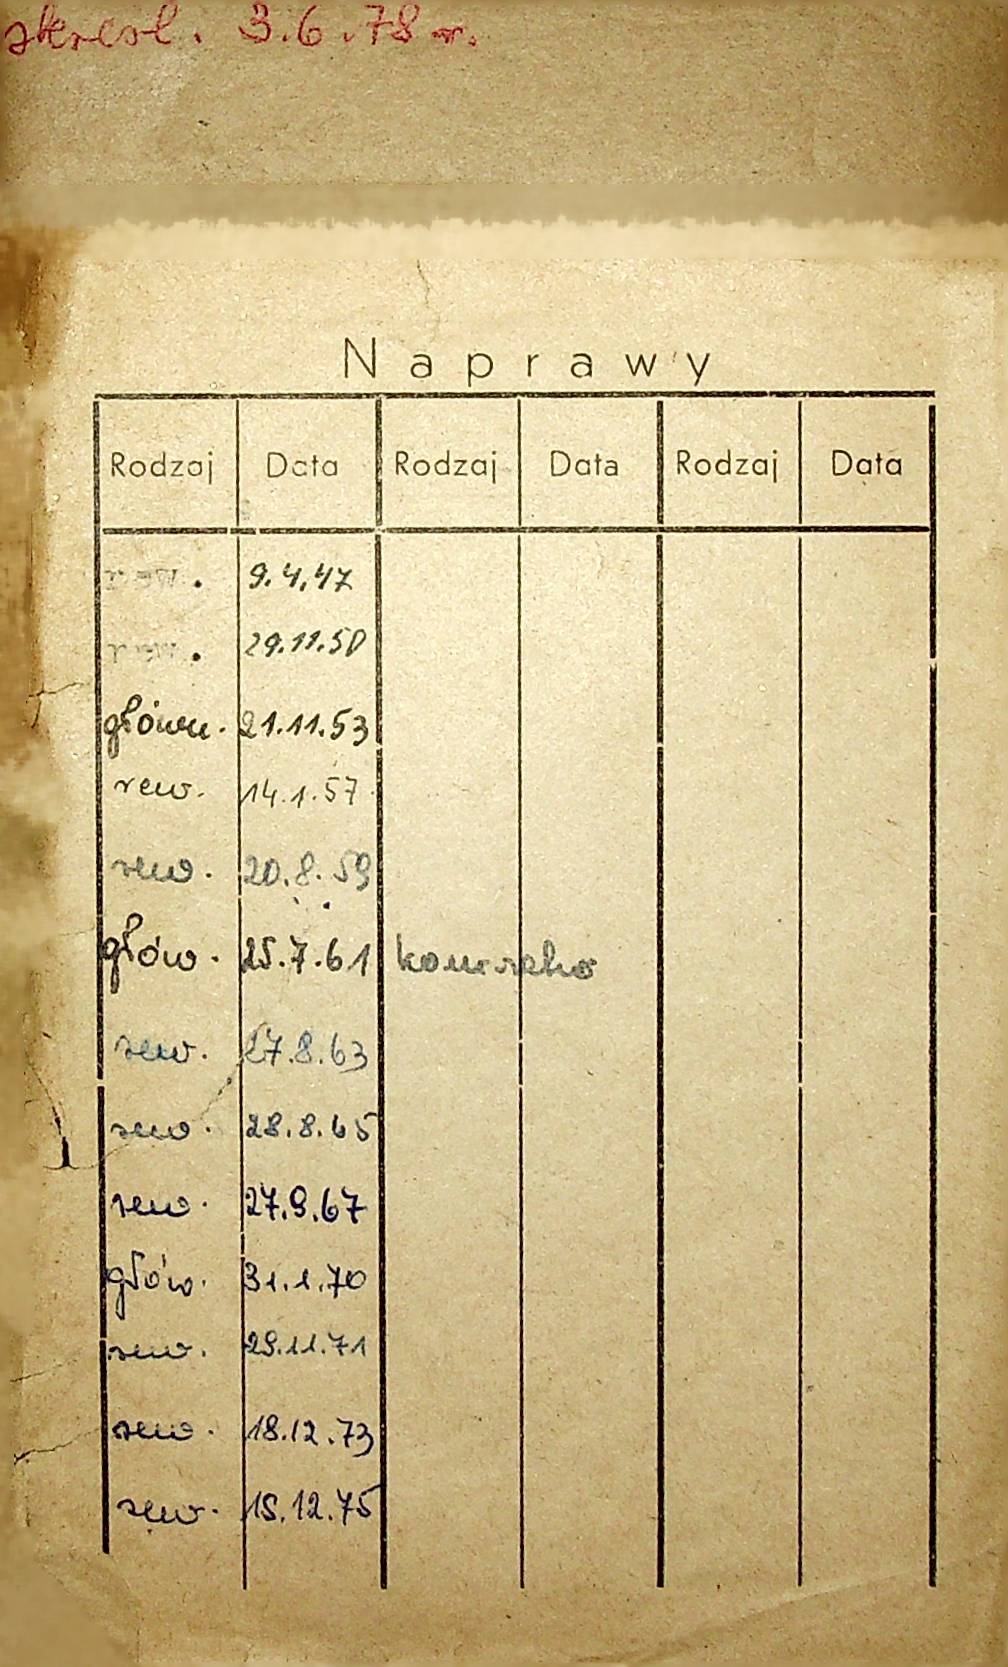 skreśl. 3.6.78 r.
Naprawy
Rodzaj Data Rodzaj Data Rodzaj Data
. 9.4.47
. 29.11.50
główn. 21.11.53
rew. 14.1.57
rew. 20.8.59
głów. 25.7.61
rew. 27.8.63
rew. 28.8.65
rew. 27.9.67
głów. 31.1.70
rew. 29.11.71
rew. 18.12.73
rew. 15.12.75